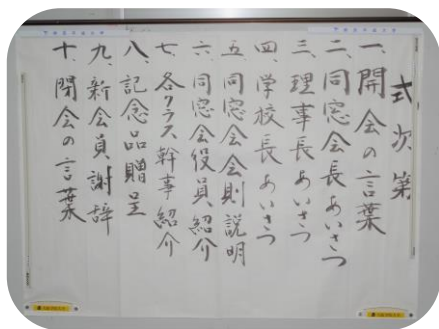 式次第
一、開会の言葉
二、同窓会長あいさつ
三、理事長あいさつ
四、学校長あいさつ
五、同窓会会則説明
六、同窓会役員紹介
七、各クラス幹事紹介
八、記念品贈呈
九、新会員謝辞
十、閉会の言葉